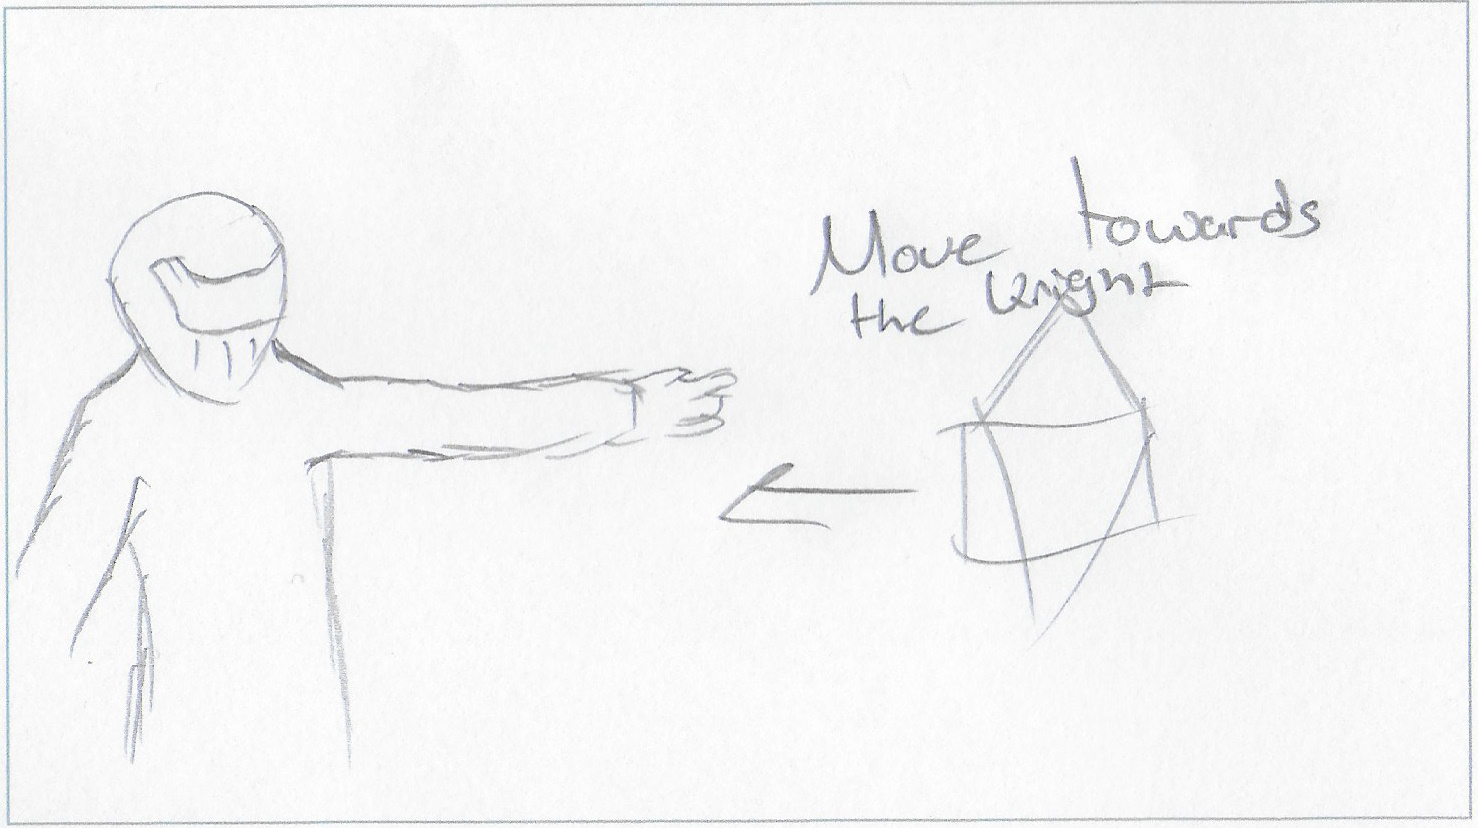 Move towards
the knight